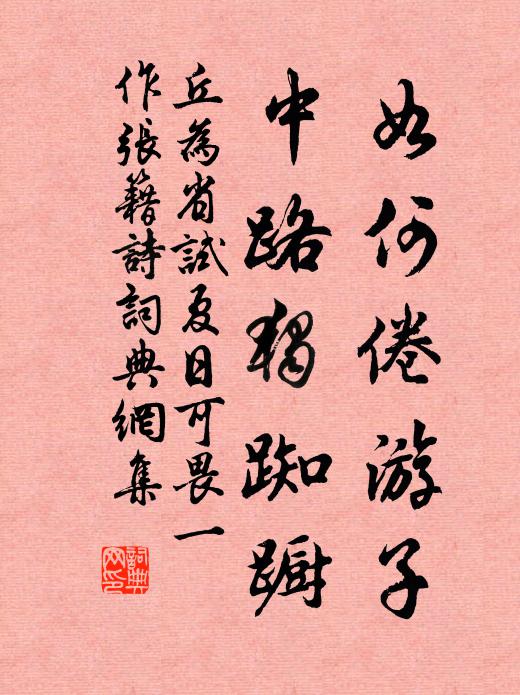 如何倦游子
中路獨踟躕
丘為省試夏日可畏一
作張籍詩詞典網集
詞典网印